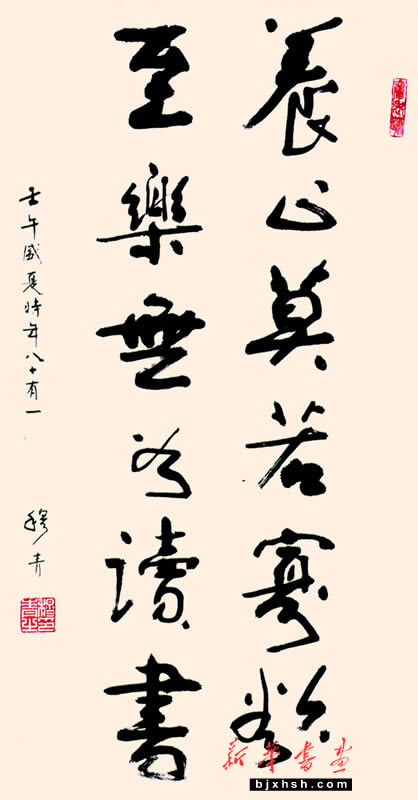 養心莫若寡欲
至樂無如讀書
壬午盛夏時年八十有一
穆青
新华书画
bjxhsh.com